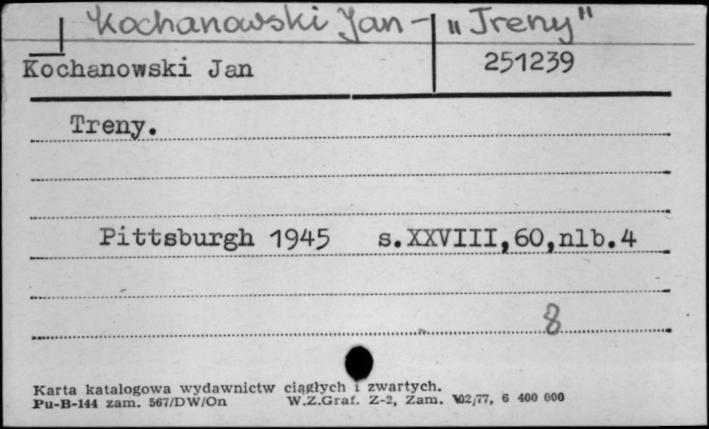 Kochanowski Jan - „Treny"
Kochanowski Jan 251239
Treny.
Pittsburgh 1945 s.XXVIII,60,nlb.4
8
Karta katalogowa wydawnictw ciągłych i zwartych.
Pu-B-144 zam. 567/DW/On W.Z.Graf. Z-2, Zam. 102/77, 6 400 000